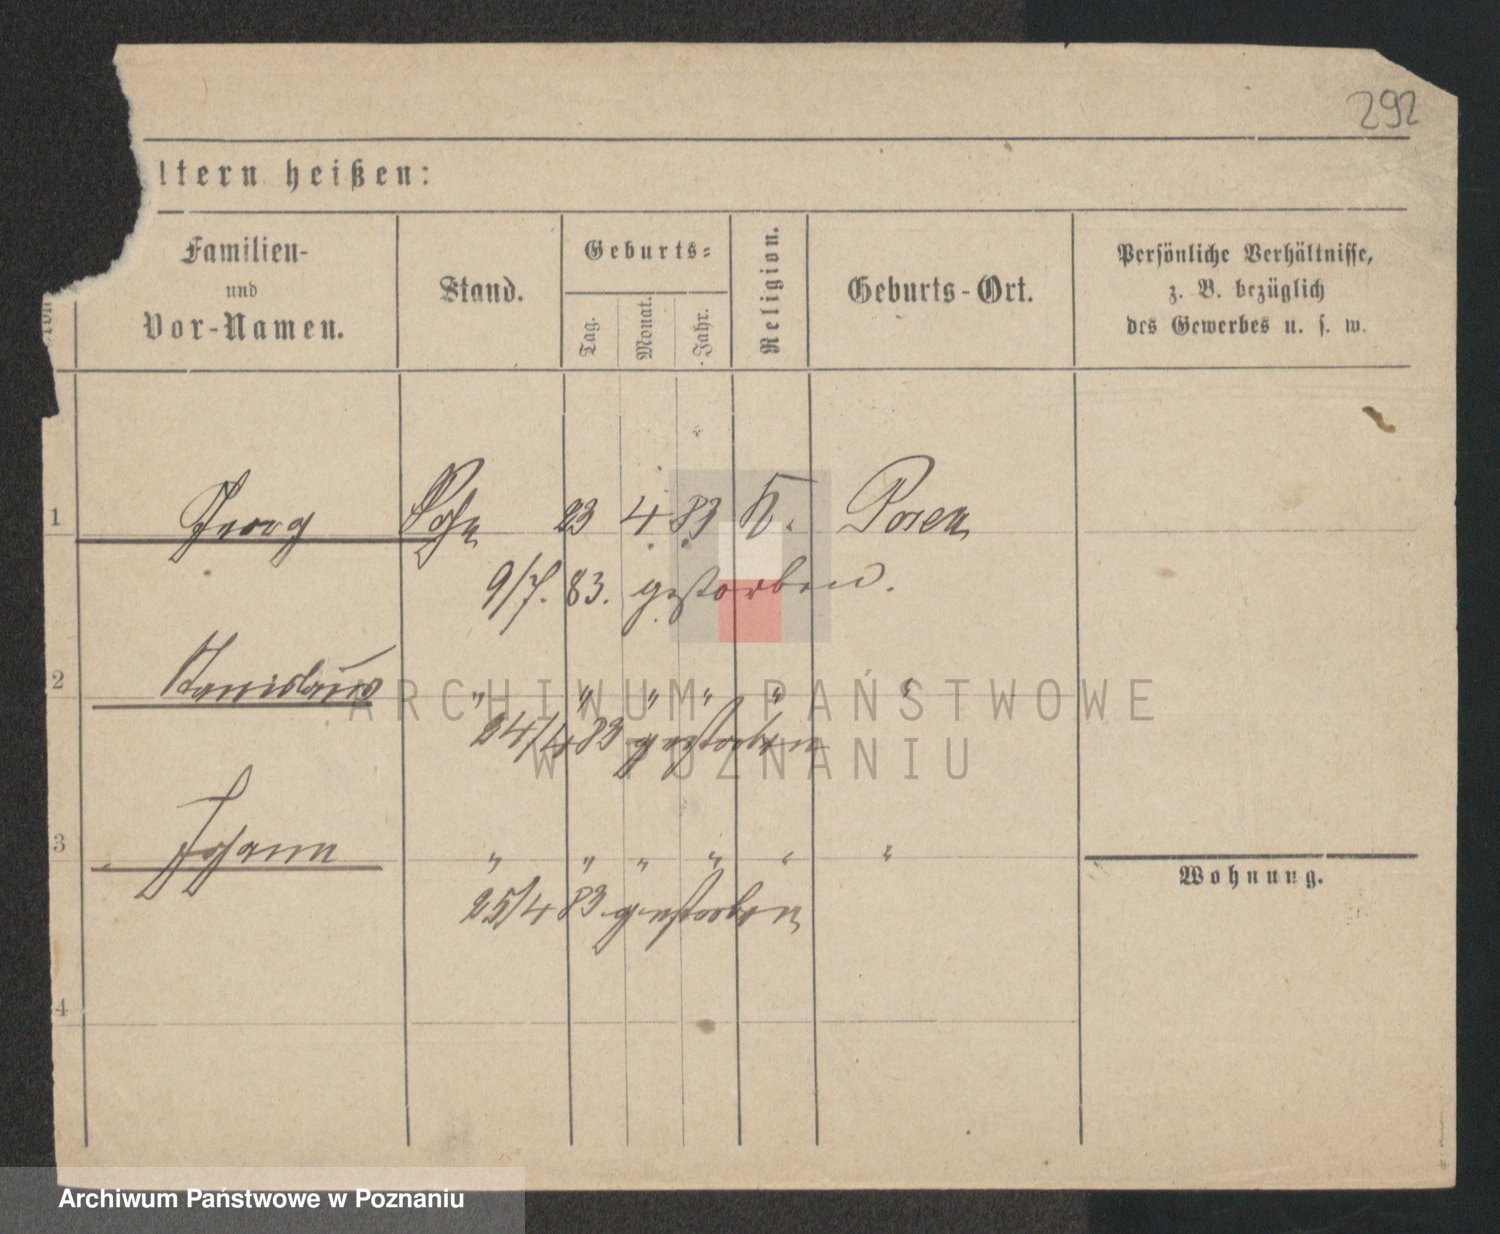 292
ltern heißen:
Familien-
und
Vor-Namen.
Stand.
Geburts-
Tag.
Monat.
Jahr.
Religion.
Geburts-Ort.
Persönliche Verhältnisse,
z. B. bezüglich
des Gewerbes u. s. w.
1 Georg Sohn 23 4. 83 K. Posen
9/7. 83. gestorben.
2 Stanislaus " " " " " "
24/4 83 gestorben
3 Johann " " " " " "
25/4 83 gestorben
Wohnung.
4
ARCHIWUM PAŃSTWOWE
W POZNANIU
Archiwum Państwowe w Poznaniu